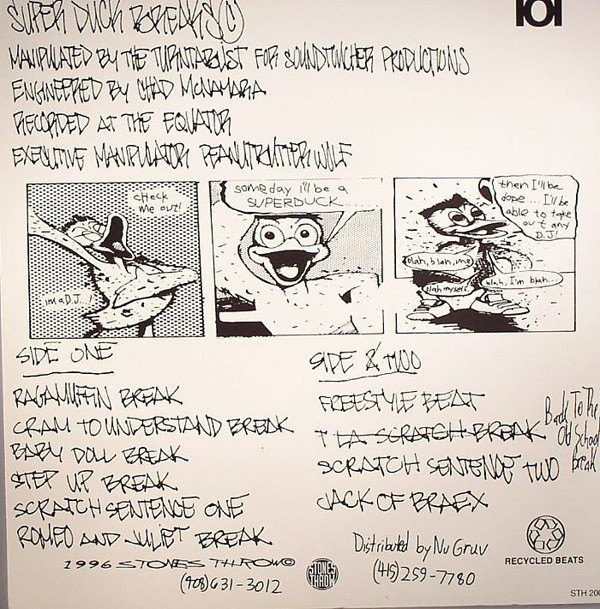 101
SUPER DUCK BREAKS ©
MANIPULATED BY THE TURNTABLIST FOR SOUNDTWICHER PRODUCTIONS
ENGINEERED BY CHAD McNAMARA
RECORDED AT THE EQUATOR
EXECUTIVE MANIPULATOR PEANUTBUTTER WOLF
check
me out!
im a D.J...!
someday i'll be a
SUPERDUCK
then I'll be
dope... I'll be
able to take
out any
D.J!
blah, blah, me
blah myself
blah, I'm blah...
SIDE ONE
RAGAMUFFIN BREAK
CRAM TO UNDERSTAND BREAK
BABY DOLL BREAK
STEP UP BREAK
SCRATCH SENTENCE ONE
ROMEO AND JULIET BREAK
1996 STONES THROW ©
(408) 631-3012
STONES
THROW
SIDE TWO
FREESTYLE BEAT
LA SCRATCH BREAK
Back To The
Old School
Break
SCRATCH SENTENCE TWO
JACK OF BRAEX
Distributed by Nu Gruv
(415) 259-7780
RECYCLED BEATS
STH 200